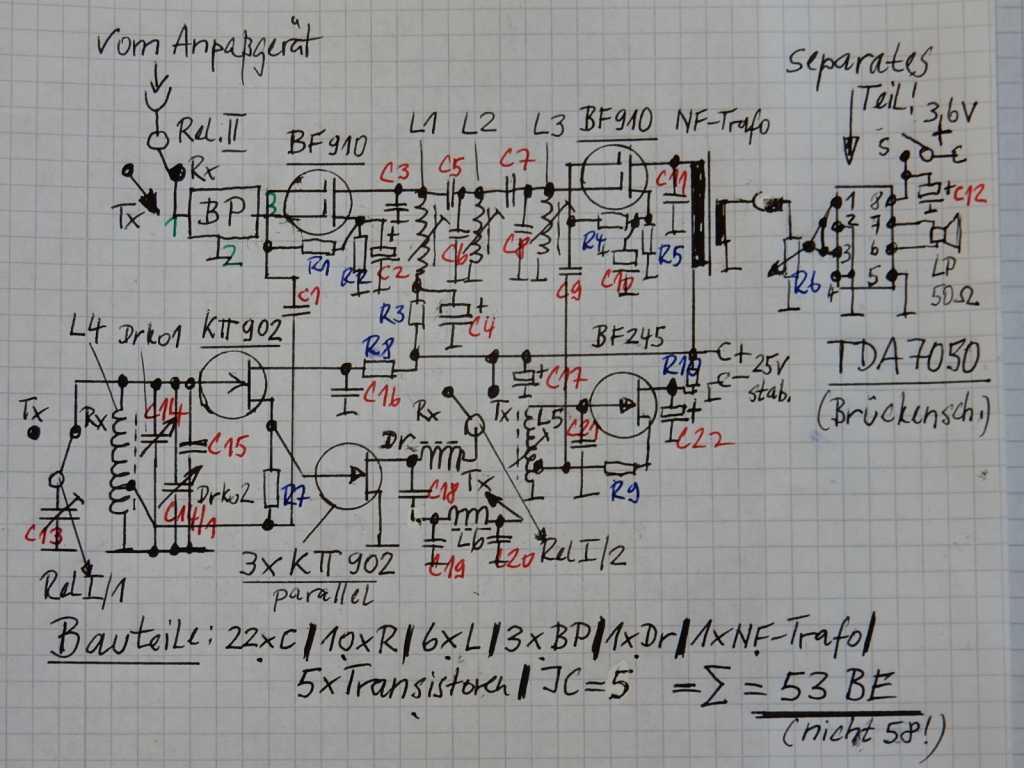 Vom Anpaßgerät
separates
Teil!
3,6V
Rel. II
Rx
Tx
BF910
L1 L2 L3
BF910
NF-Trafo
S
+
1 BP 3
2
C3 C5 C7
C11
C12
R1 R2 C2
C6 C8
R4 C10 R5
C9
R6
1 8
2 7
3 6
4 5
LP
50Ω
C1
R3 C4
L4 Drko1 KП902
R8
BF245
R10
C+
-25V
stab.
TDA7050
(Brückensch.)
Tx
Rx
C14
C15
C16
C17
Rx
Tx
L5
C21
C22
Dr
C13
Drko2
R7
C18
Tx
R9
C19 L6 C20
Rel I/1
3xKП902
parallel
Rel I/2
Bauteile: 22xC/10xR/6xL/3xBP/1xDr/1xNF-Trafo/
5xTransistoren/ IC=5 =Σ = 53 BE
(nicht 58!)